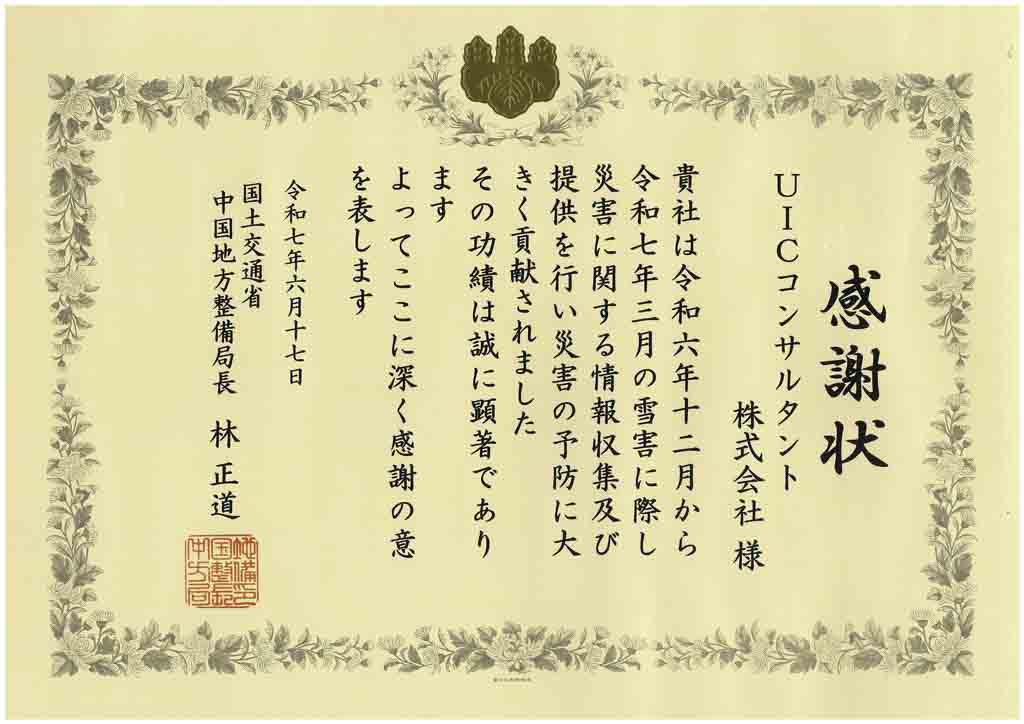 感謝状
UICコンサルタント
株式会社 様
貴社は令和六年十二月から
令和七年三月の雪害に際し
災害に関する情報収集及び
提供を行い災害の予防に大
きく貢献されました
その功績は誠に顕著であり
ます
よってここに深く感謝の意
を表します
令和七年六月十七日
国土交通省
中国地方整備局長 林 正道